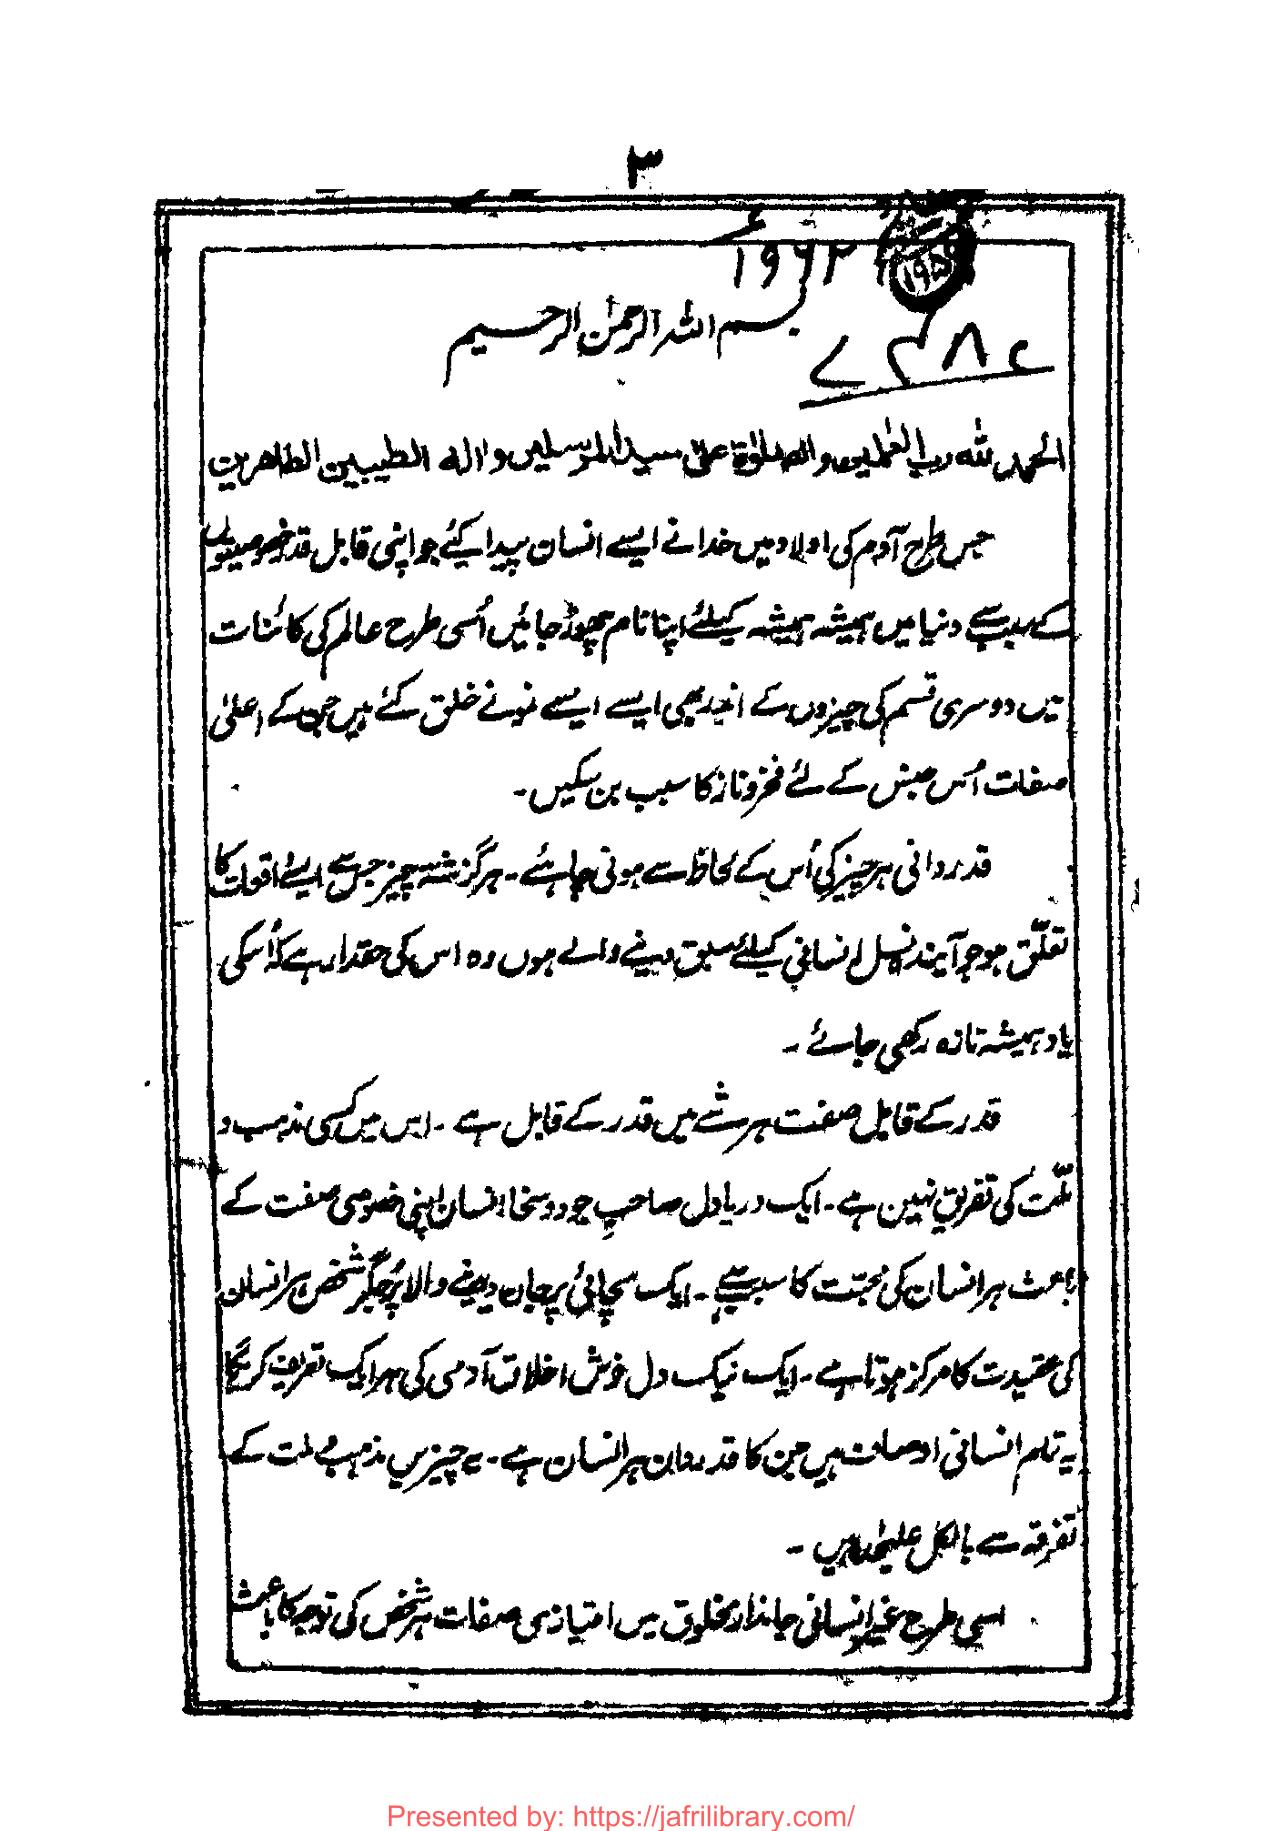 ۳
۱۹۶۳ء
۱۹۵۹
بسم اللہ الرحمٰن الرحیم
الحمد للہ رب العٰلمین والصلوٰۃ علیٰ سید المرسلین واٰلہ الطیبین الطاھرین
جس طرح آدم کی اولاد میں خدا نے ایسے انسان پیدا کیے جو اپنی قابل قدر خصوصیتوں
کے سبب سے دنیا میں ہمیشہ ہمیشہ کیلئے اپنا نام چھوڑ جائیں اُسی طرح عالم کی کائنات
میں دوسری قسم کی چیزوں کے اندر بھی ایسے ایسے نمونے خلق کئے ہیں جن کے اعلیٰ
صفات اُس جنس کے لئے فخر و ناز کا سبب بن سکیں۔
قدردانی ہر چیز کی اُس کے لحاظ سے ہونی چاہئے۔ ہر گزشتہ چیز جس سے ایسے واقعات کا
تعلّق ہو جو آیندہ نسل انسانی کیلئے سبق دینے والے ہوں وہ اس کی حقدار ہے کہ اُسکی
یاد ہمیشہ تازہ رکھی جائے۔
قدر کے قابل صفت ہر شے میں قدر کے قابل ہے۔ اس میں کسی مذہب و
ملّت کی تفریق نہیں ہے۔ ایک دریا دل صاحبِ جود و سخا انسان اپنی خصوصی صفت کے
باعث ہر انسان کی محبّت کا سبب ہے۔ ایک سچائی پر جان دینے والا پُر جگر شخص ہر انسان
کی عقیدت کا مرکز ہوتا ہے۔ ایک نیک دل خوش اخلاق آدمی کی ہر ایک تعریف کریگا
یہ تمام انسانی اوصاف ہیں جن کا قدردان ہر انسان ہے۔ یہ چیزیں مذہب و ملت کے
تفرقہ سے بالکل علیٰحدہ ہیں۔
اسی طرح غیر انسانی جاندار مخلوق میں امتیازی صفات ہر شخص کی توجہ کا باعث
Presented by: https://jafrilibrary.com/